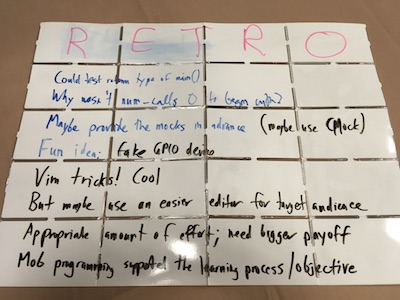 RETRO
Could test return type of main()
Why wasn't num-calls 0 to begin with?
Maybe provide the mocks in advance (maybe use CMock)
Fun idea: fake GPIO device
Vim tricks! Cool
But maybe use an easier editor for target audience
Appropriate amount of effort; need bigger payoff
Mob programming supported the learning process/objective